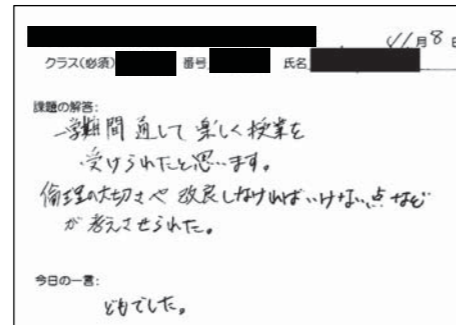 11月8日
クラス(必須) 番号 氏名
課題の解答:
一学期間通して楽しく授業を
受けられたと思います。
倫理の大切さや改良しなければいけない点など
が考えさせられた。
今日の一言:
どもでした。